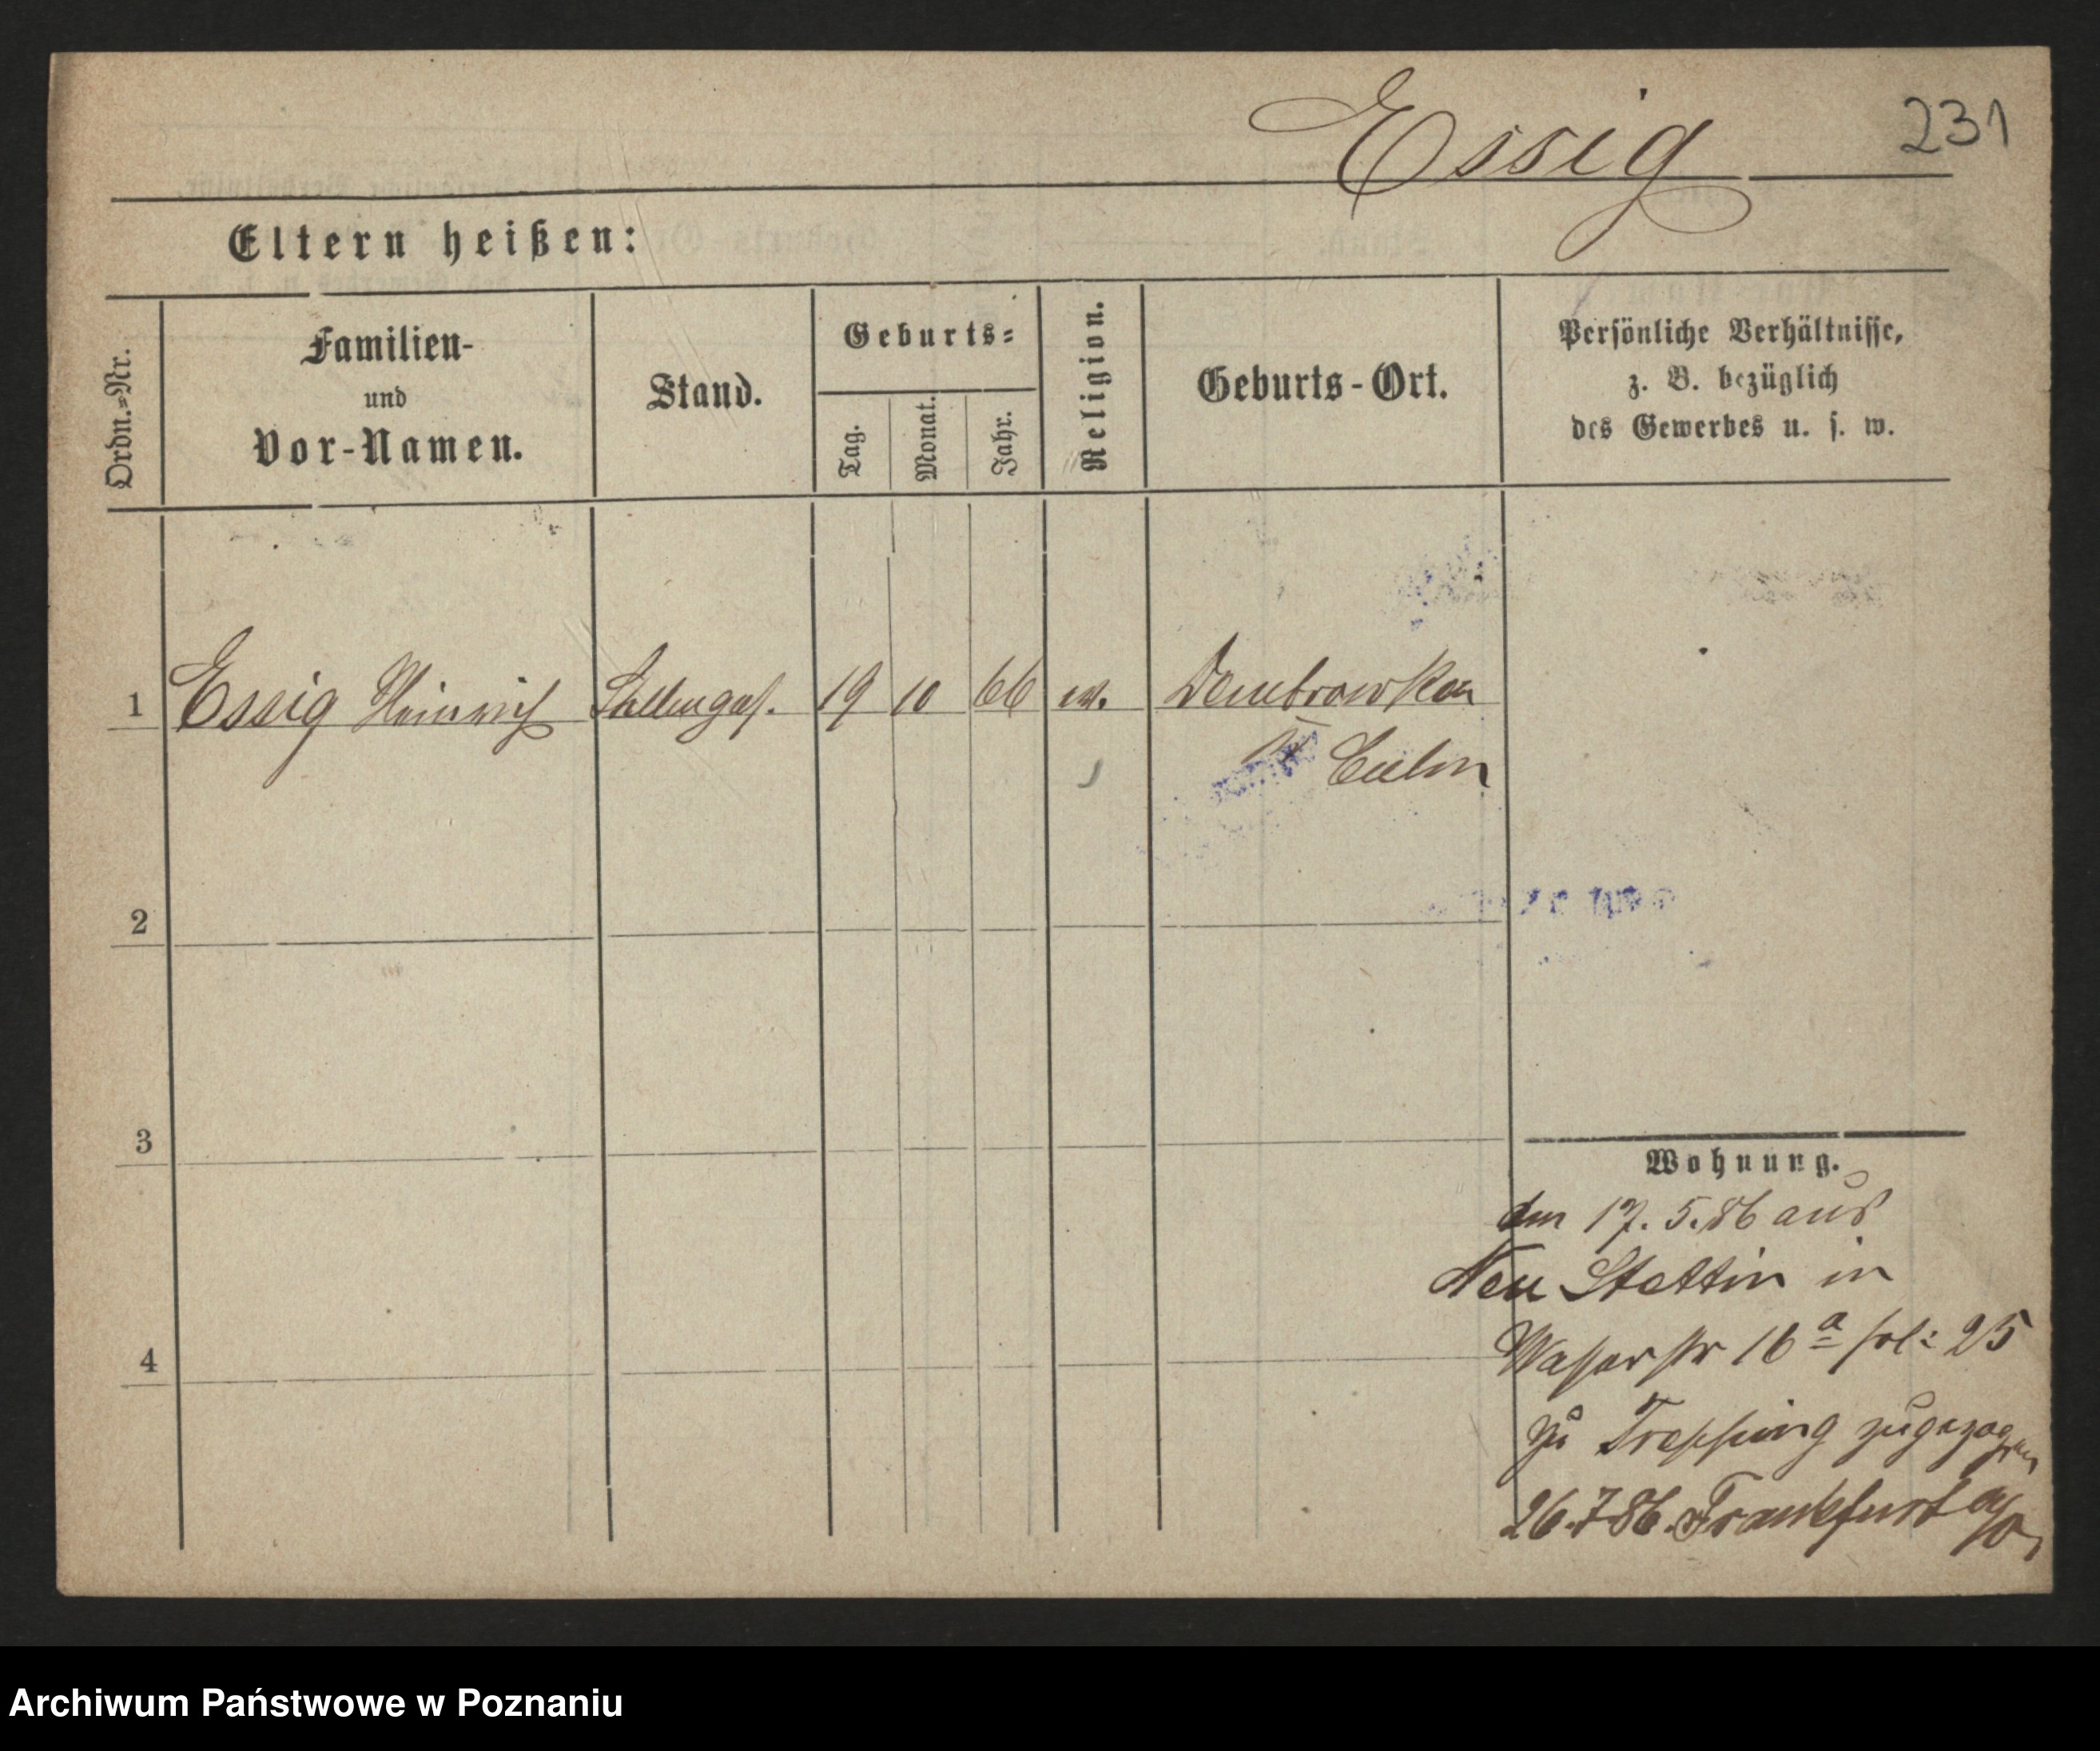 Essig
231
Eltern heißen:
Ordn.=Nr.
Familien-
und
Vor-Namen.
Stand.
Geburts=
Tag.
Monat.
Jahr.
Religion.
Geburts-Ort.
Persönliche Verhältnisse,
z. B. bezüglich
des Gewerbes u. s. w.
1 Essig Heinrich 19 10 66 ev. Dembrowken
Culm
2
3
4
Wohnung.
den 17. 5. 86 aus
Neu Stettin in
Wasserstr 16 a 25
zu zugezogen
26.7.86. Frankfurt a/O
Archiwum Państwowe w Poznaniu